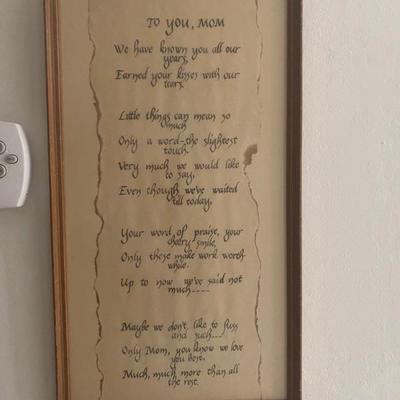 TO YOU, MOM
We have known you all our
years,
Earned your kisses with our
tears.
Little things can mean so
much
Only a word-the slightest
touch.
Very much we would like
to say,
Even though we've waited
till today,
Your word of praise, your
cheery smile,
Only these make work worth
while.
Up to now we've said not
much----
Maybe we don't like to fuss
and such---
Only Mom, you know we love
you best,
Much, much more than all
the rest.